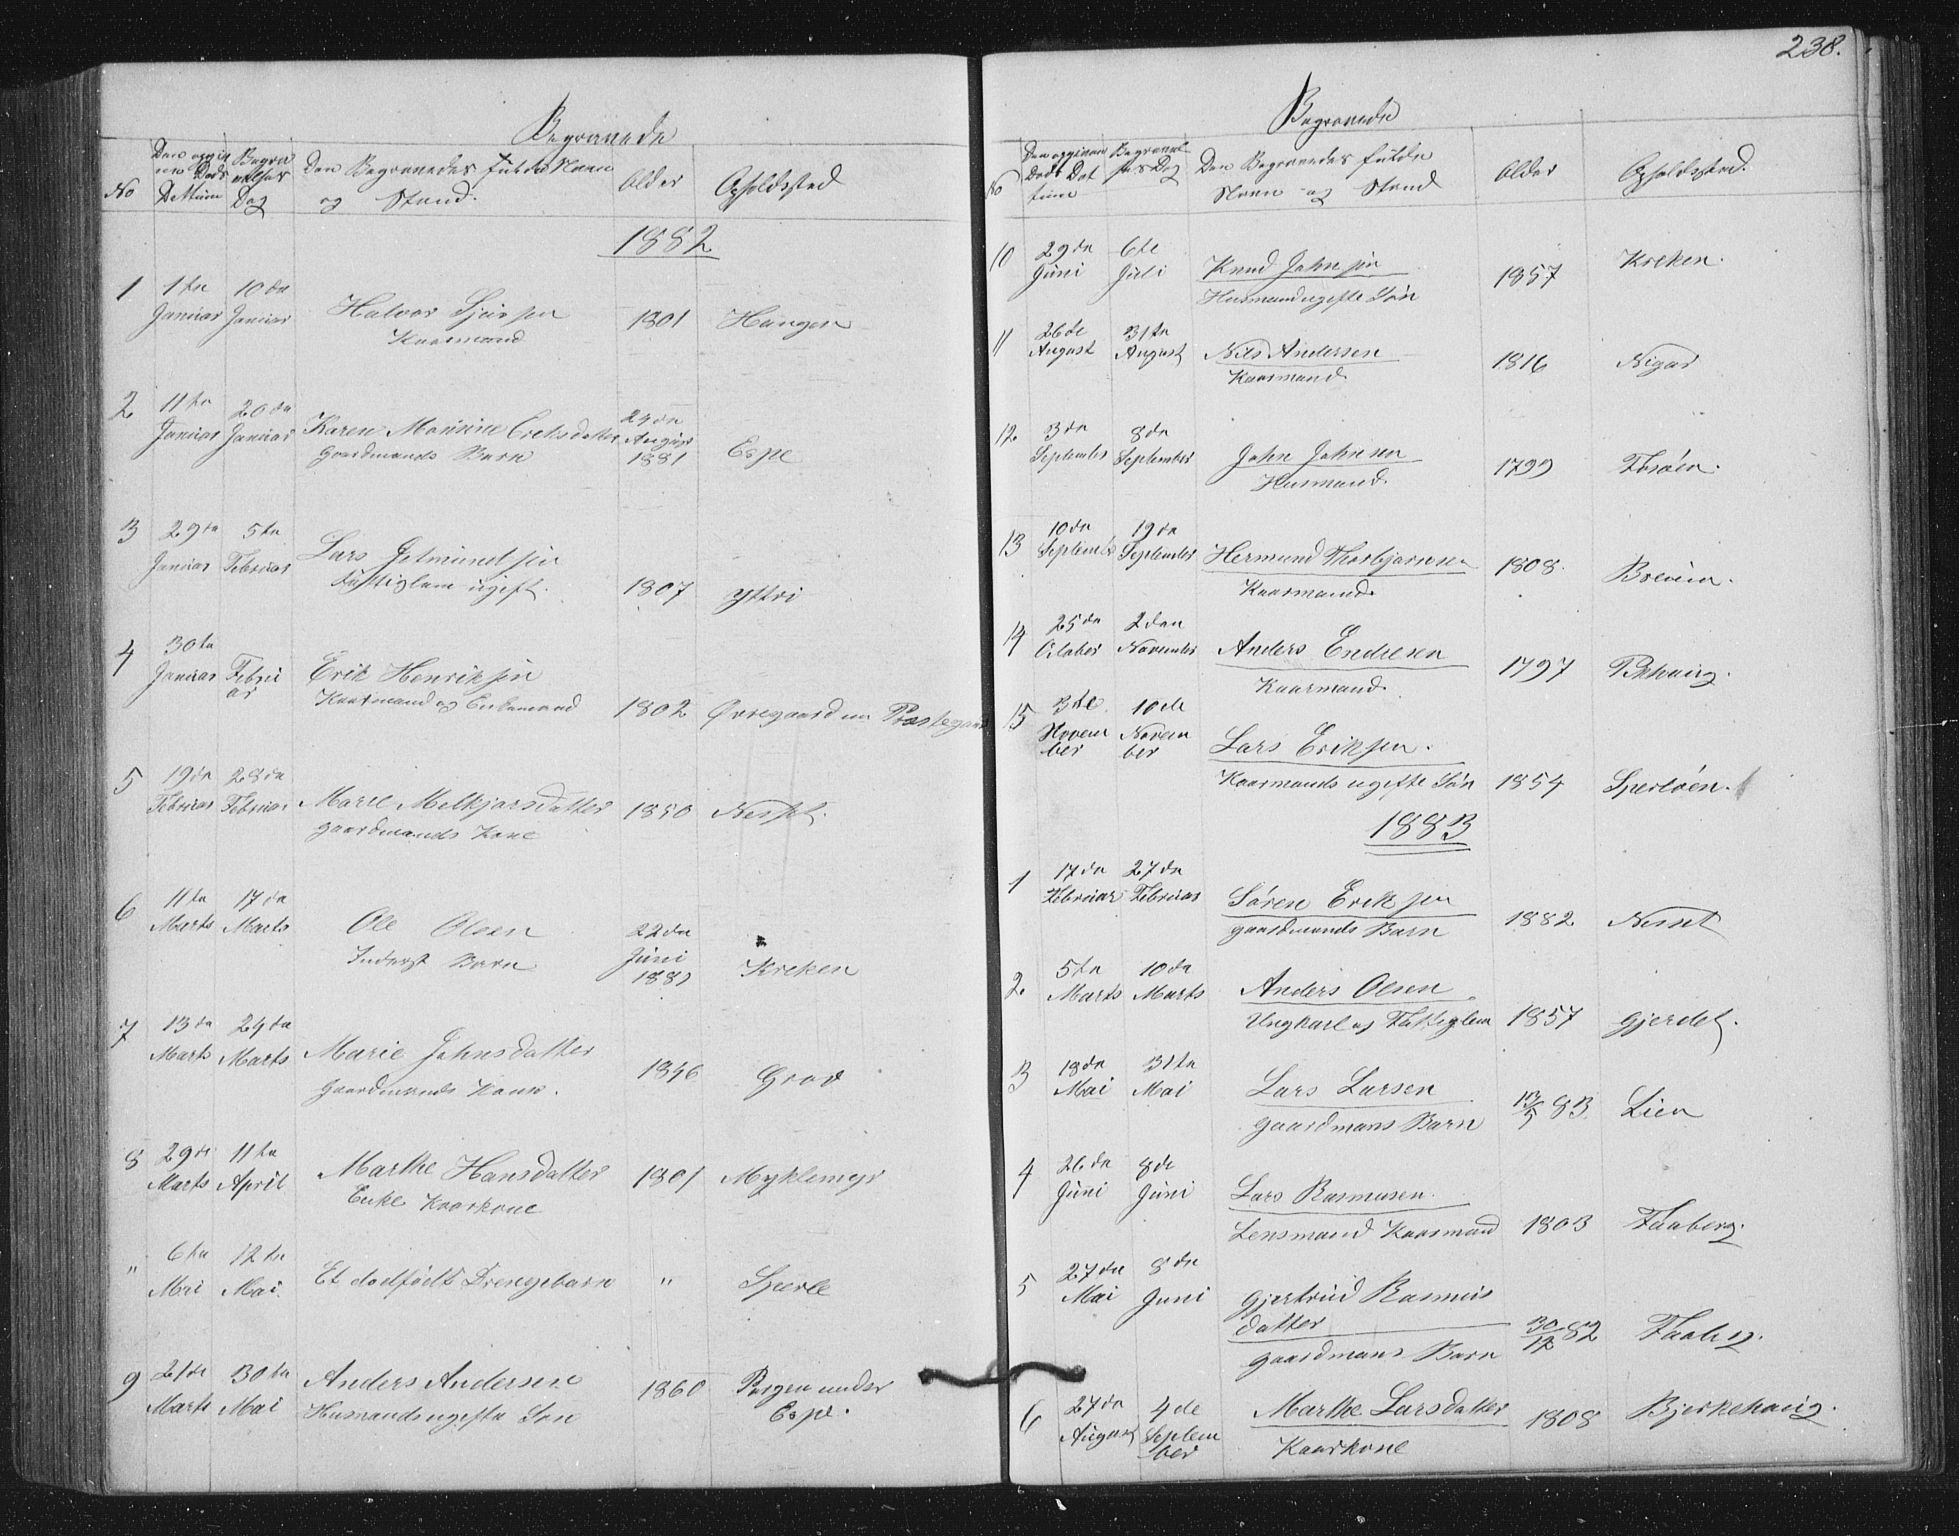 238.
Begravede
No
Den opgivne Døds Dattum
Begravelses Dag
Den Begravedes fulde Navn og Stand.
Alder
Opholdssted
1882
1 1te Januar 10de Januar Halvor Sjursen 1801 Haugen
Kaarmand
2 11te Januar 20de Januar Karen Erichsdatter 24de August 1881 Espe
Gaardmands Barn
3 29de Januar 5te Februar Lars 1807 Yttri
Fattiglem ugift.
4 30te Januar Februar Erik Henriksen 1802
Kaarmand og Enkemand
5 19de Februar 28de Februar Marie Melkjorsdatter 1850
Gaardmands Kone
6 11te Marts 17de Marts Ole Olsen 22de Juni Kreken
Inderst Barn
7 13de Marts 24de Marts Marie Johnsdatter 1846
Gaardmands Kone.
8 29de Marts 11te April Marthe Hansdatter 1801 Myklemyr
Enke Kaarkone
" 6te Mai 12te Mai. Et dødfødt Drengebarn " Sperle
9 Marts 30te Mai Anders Andersen 1860 under Espe.
Husmands ugifte Søn
Begravede
No
Den opgivne Døds Dattum
Begravelses Dag
Den Begravedes fulde Navn og Stand
Alder
Opholdssted.
10 29de Juni 6te Juli Knud Johnsen 1857 Kreken.
Husmand ugifte Søn
11 26de August 31te August Nils Andersen 1816 Nigar
Kaarmand
12 3de September 8de September John Johnsen 1799
Husmand.
13 10de September 19de September Hermund Thorbjørnsen 1808.
Kaarmand.
14 25de October 2den November Anders Endresen 1797
Kaarmand.
15 3de November 10de November Lars Eriksen. 1854 Sperløen.
Kaarmands ugifte Søn
1883
1 17de Februar 27de Februar Søren Eriksen 1882
Gaardmands Barn
2. 5te Marts 10de Marts Anders Olsen 1857 Gjerdet.
Ungkarl og Fattiglem
3 18de Mai 31te Mai Lars Larsen 13/5 83 Lien
Gaardmans Barn
4 26de Juni 8de Juni Lars Rasmusen. 1803 Faaberg.
Lensmand Kaarmand
5 27de Mai 8de Juni Gjertrud Rasmus
datter 30/12 82
Gaardmans Barn
6 24de August 4de September Marthe Larsdatter 1808 Bjerkehaug.
Kaarkone